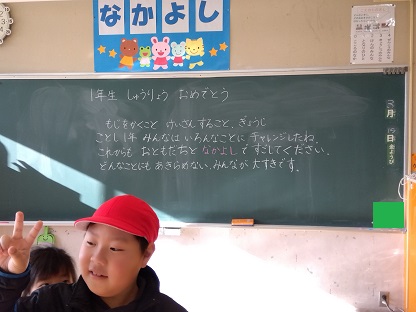 なかよし
1年生 しゅうりょう おめでとう
もじをかくこと けいさんすること、ぎょうじ
ことし1年 みんなは いろんなことに チャレンジしたね。
これからも おともだちと なかよしで すごしてください。
どんなことにも あきらめない、みんなが 大すきです。
月
日